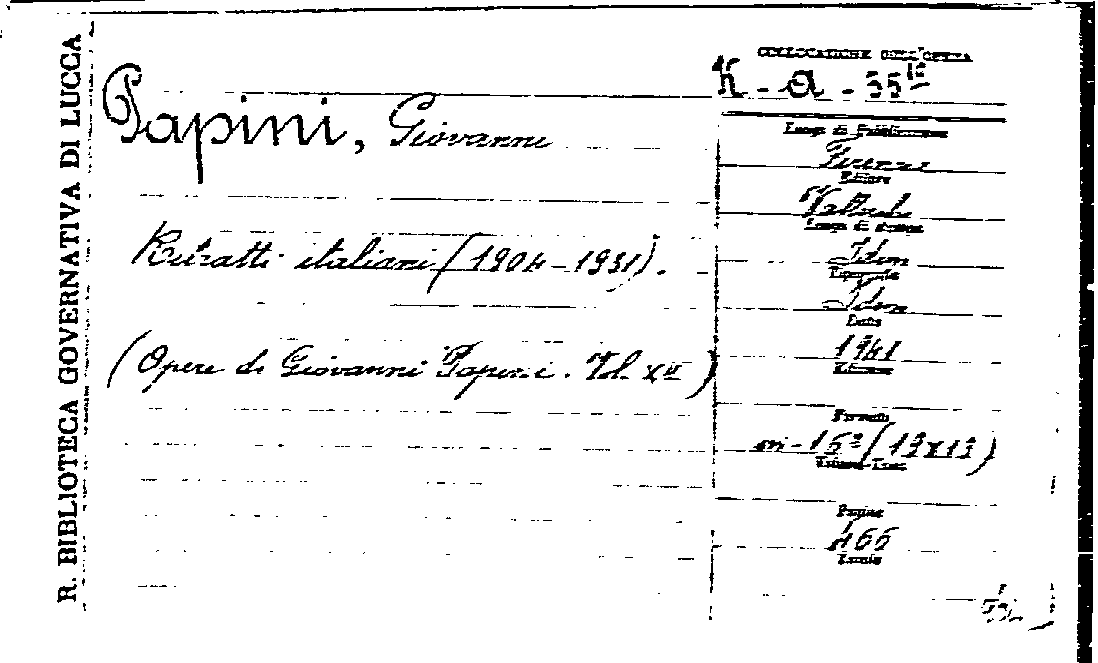 R. BIBLIOTECA GOVERNATIVA DI LUCCA
Papini, Giovanni
Ritratti italiani (1904-1931).
(Opere di Giovanni Papini. Vol. XII)
COLLOCAZIONE DELL'OPERA
K - a - 55
Luogo di Pubblicazione
Firenze
Editore
Vallecchi
Luogo di stampa
Idem
Tipografia
Idem
Data
1941
Edizione
Formato
in-16° (19x13)
Volumi-Tomi
Pagine
466
Tavole